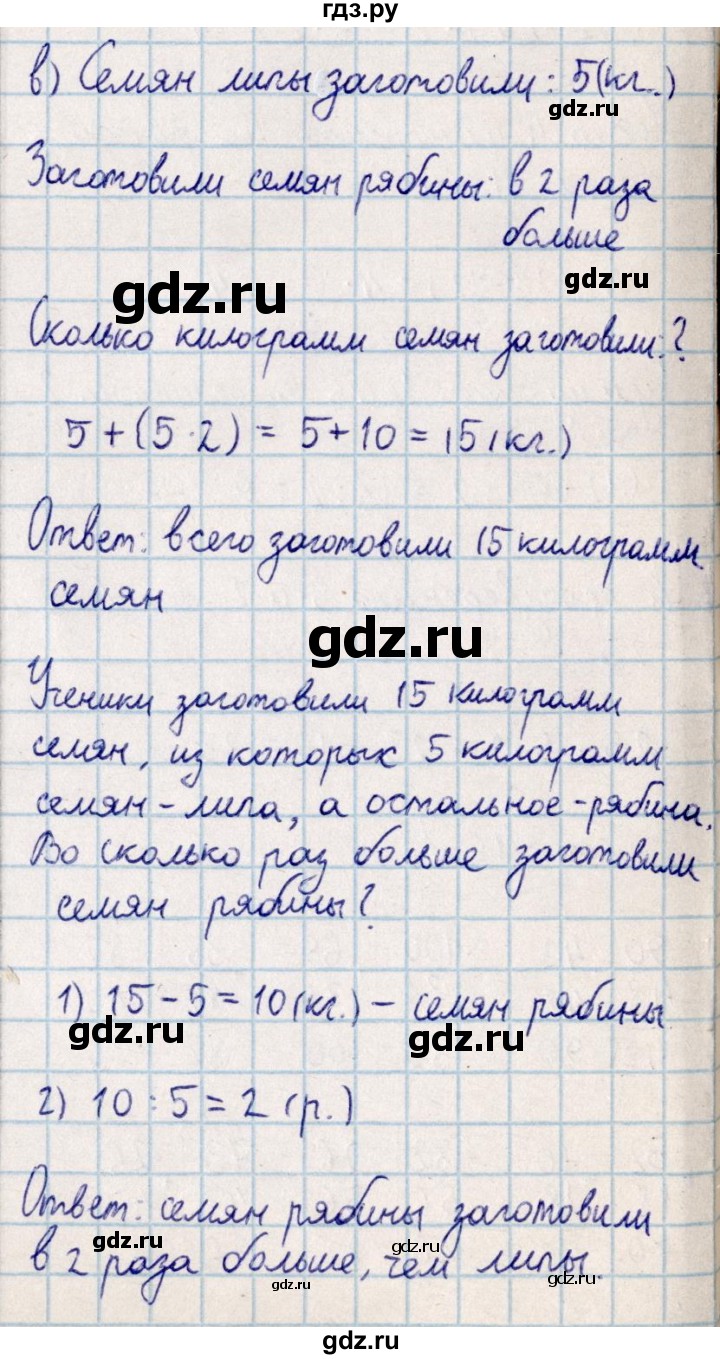 гдз.ру
в) Семян липы заготовили: 5(кг.)
gdz.ru
Заготовили семян рябины: в 2 раза
больше
gdz.ru
gdz.ru
Сколько килограмм семян заготовили:?
5+(5·2) = 5+10 = 15(кг.)
Ответ: всего заготовили 15 килограмм
семян
gdz.ru
Ученики заготовили 15 килограмм
семян, из которых 5 килограмм
семян-липа, а остальное-рябина.
Во сколько раз больше заготовили
семян рябины?
1) 15-5=10(кг.) - семян рябины
gdz.ru
gdz.ru
2) 10:5=2 (р.)
Ответ: семян рябины заготовили
gdz.ru
в 2 раза больше, чем липы.
gdz.ru
gdz.ru